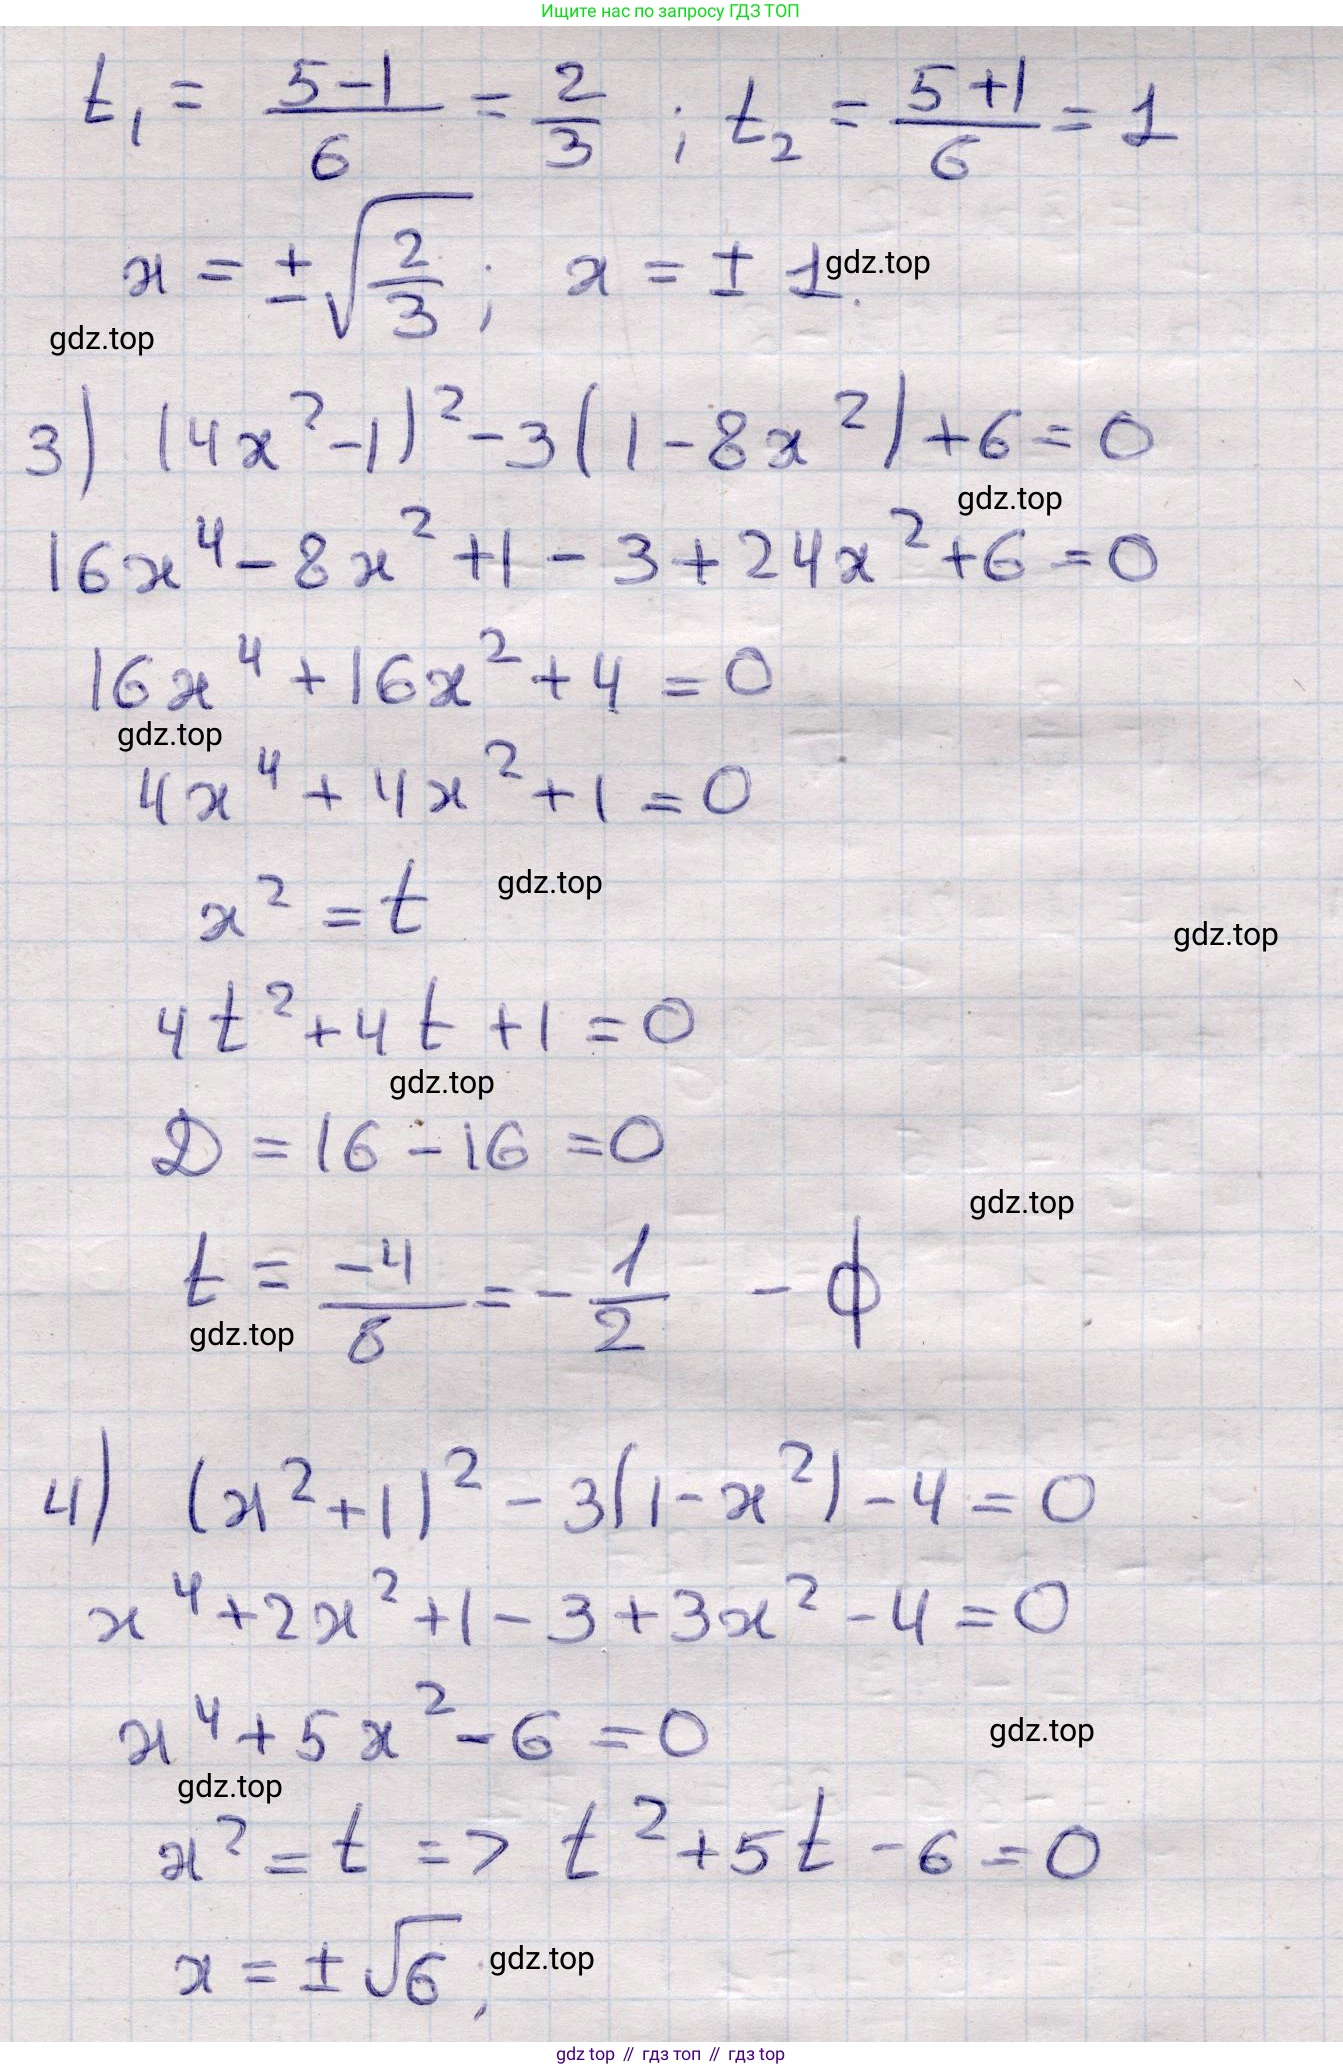 Ищите нас по запросу ГДЗ ТОП
t₁ = (5-1)/6 = 2/3 ; t₂ = (5+1)/6 = 1
x = ± √(2/3) ; x = ± 1.
gdz.top
gdz.top
3) (4x² - 1)² - 3(1 - 8x²) + 6 = 0
gdz.top
16x⁴ - 8x² + 1 - 3 + 24x² + 6 = 0
16x⁴ + 16x² + 4 = 0
gdz.top
4x⁴ + 4x² + 1 = 0
x² = t
gdz.top
gdz.top
4t² + 4t + 1 = 0
gdz.top
D = 16 - 16 = 0
gdz.top
t = -4/8 = -1/2 - ϕ
gdz.top
4) (x² + 1)² - 3(1 - x²) - 4 = 0
x⁴ + 2x² + 1 - 3 + 3x² - 4 = 0
x⁴ + 5x² - 6 = 0
gdz.top
gdz.top
x² = t => t² + 5t - 6 = 0
x = ± √6 ;
gdz.top
gdz top // гдз топ // гдз top